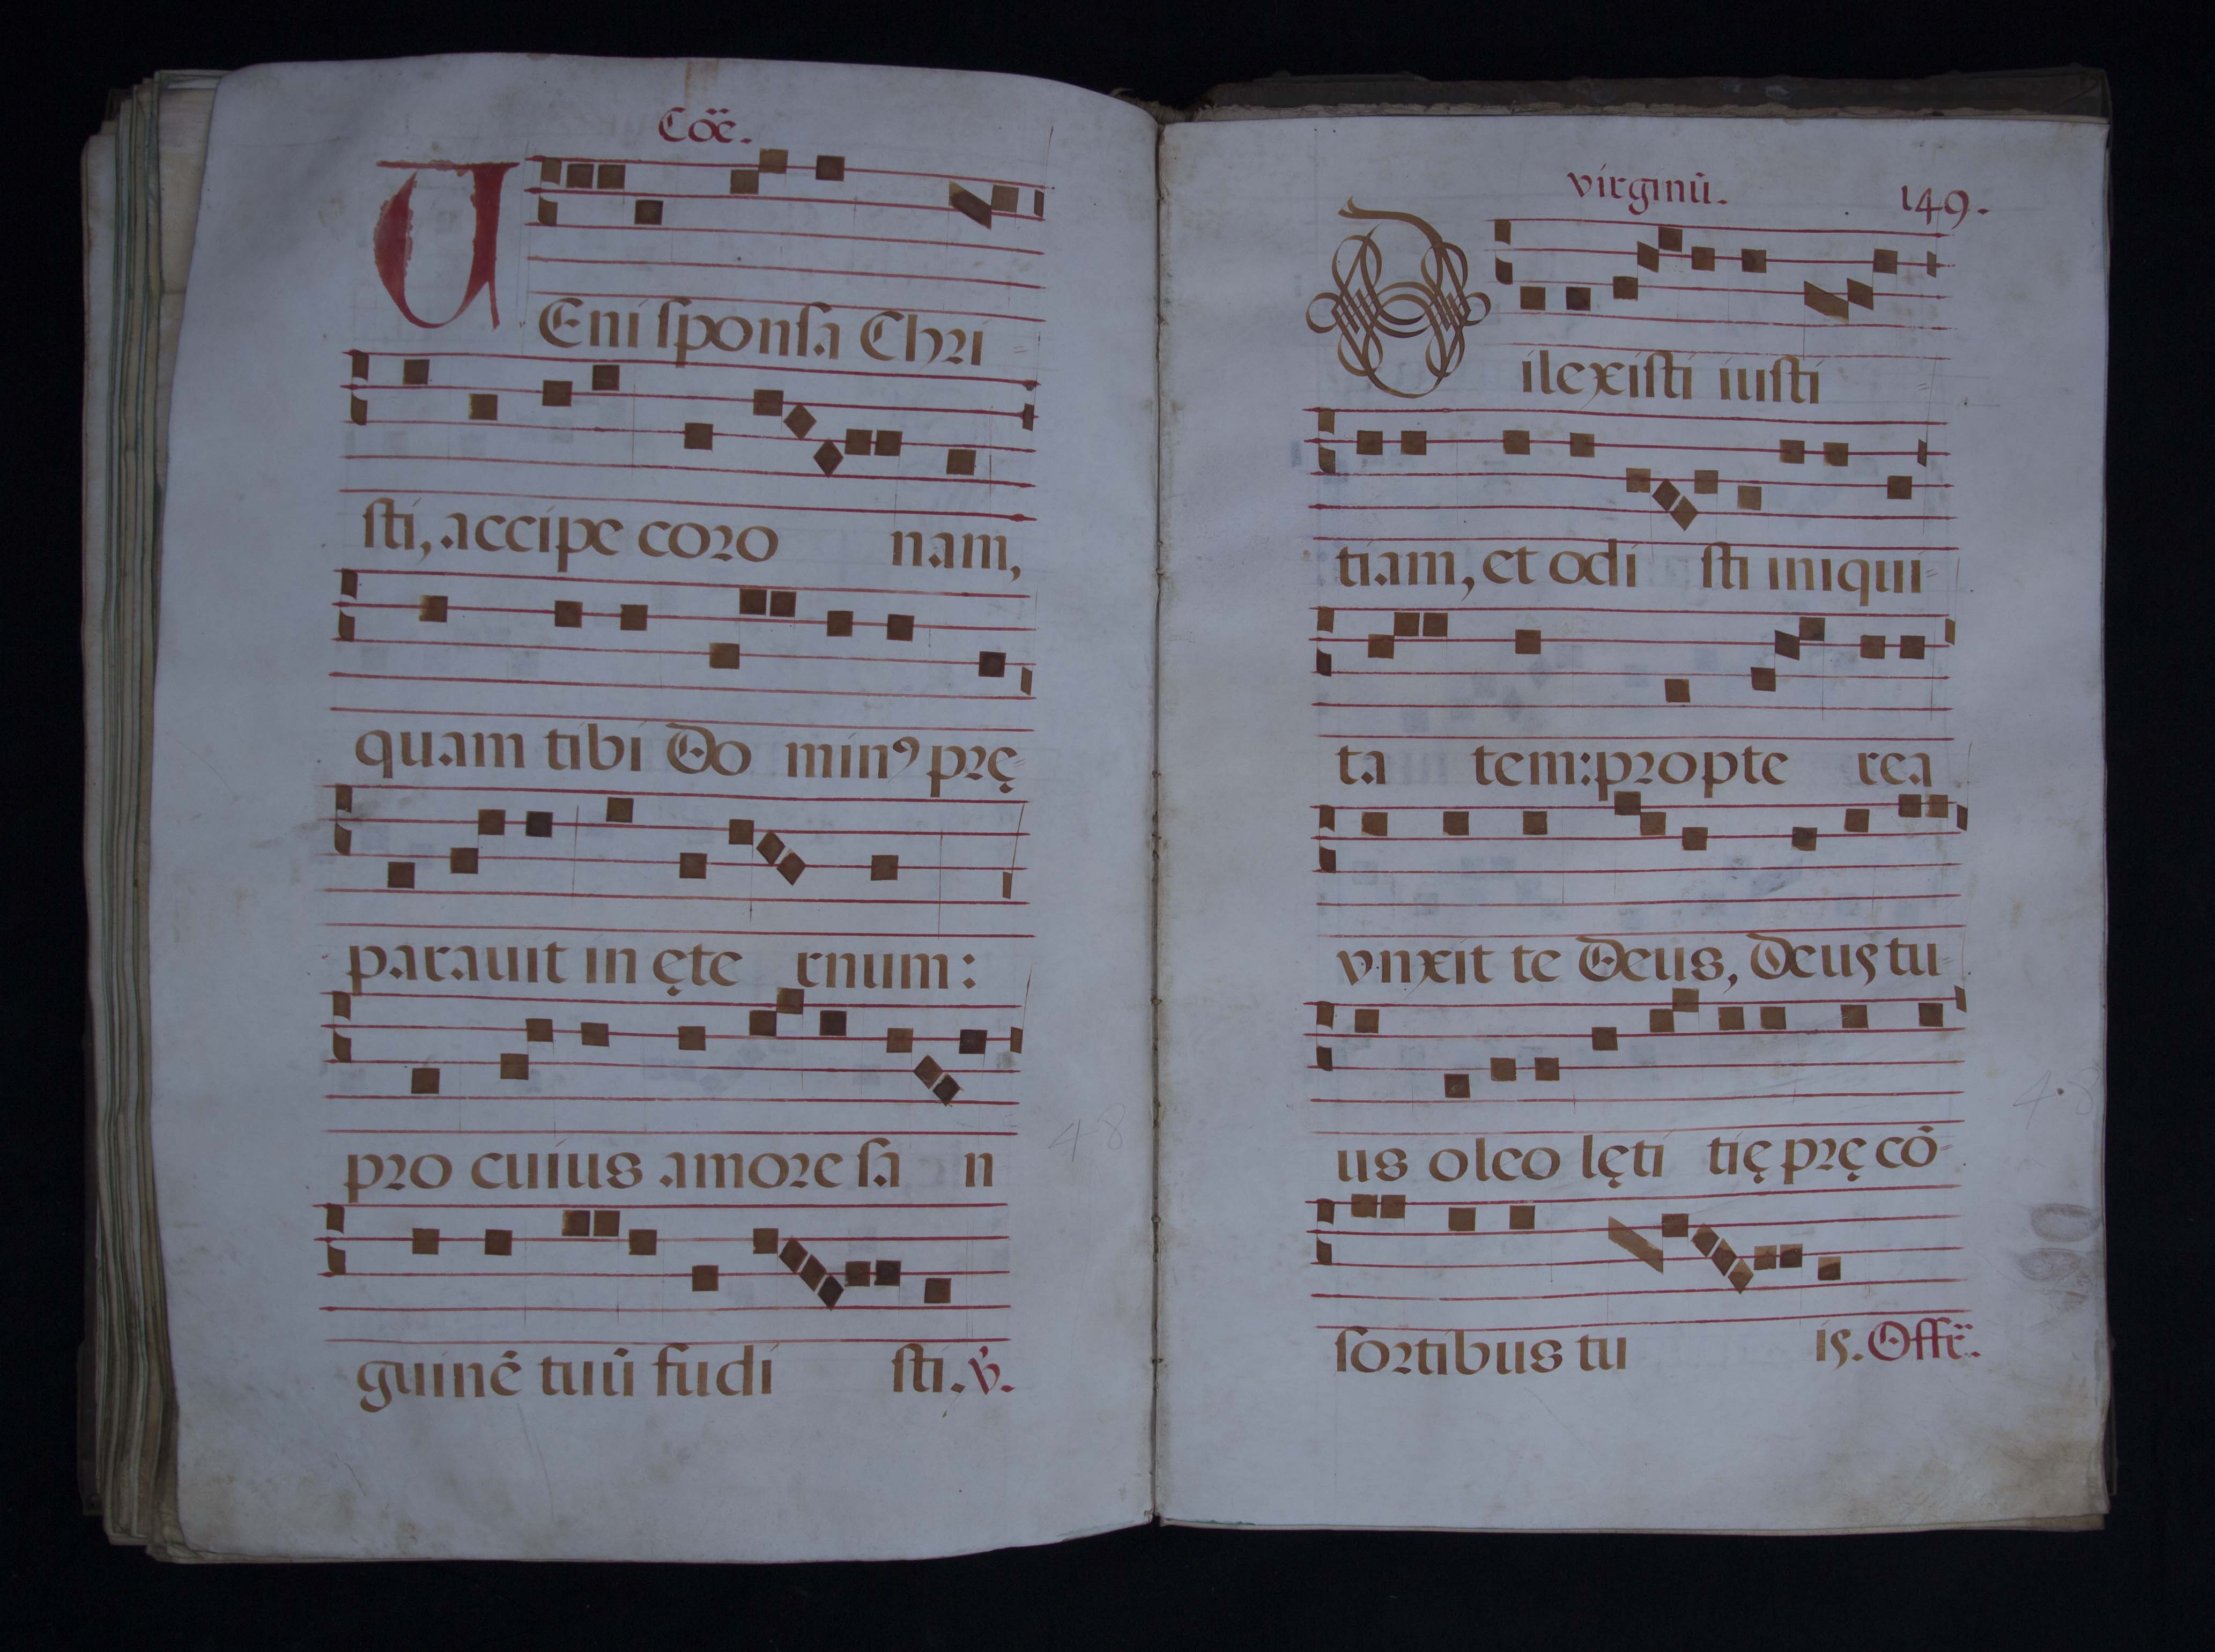 Cõe.
VEni sponsa Chri=
sti, accipe coro nam,
quam tibi Do minꝰ prę=
parauit in ęte rnum:
pro cuius amore sa n
guinẽ tuũ fudi sti. ꝟ.
48
virginũ. 149.
Dilexisti iusti=
tiam, et odi sti iniqui=
ta tem: propte rea
vnxit te Deus, Deus tu=
us oleo lęti tię prę cõ=
sortibus tu is. Offẽ.
48